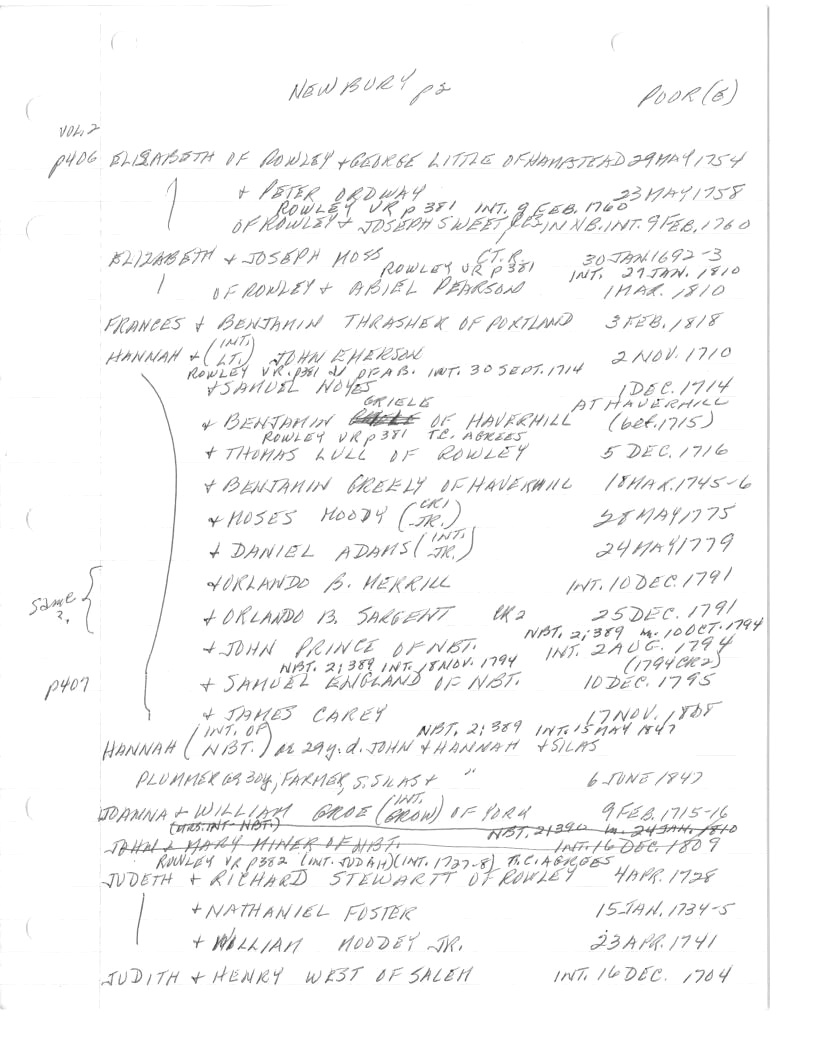 NEWBURY p2 POOR (6)
VOL. 2
p406 ELIZABETH OF ROWLEY + GEORGE LITTLE OF HAMSTEAD 29 MAY 1754
+ PETER ORDWAY 23 MAY 1758
ROWLEY VR p381 INT. 9 FEB. 1760
OF ROWLEY + JOSEPH SWEET IN NB. INT. 9 FEB. 1760
ELIZABETH + JOSEPH MOSS CT.R. 30 JAN 1692-3
ROWLEY VR p381 INT. 27 JAN. 1810
OF ROWLEY + ABIEL PEARSON 1 MAR. 1810
FRANCES + BENJAMIN THRASHER OF PORTLAND 3 FEB. 1818
HANNAH + (INT. LT.) JOHN EMERSON 2 NOV. 1710
ROWLEY VR. p381 OF AB. INT. 30 SEPT. 1714
+ SAMUEL NOYES 1 DEC. 1714
GRIELE AT HAVERHILL
+ BENJAMIN OF HAVERHILL (bef. 1715)
ROWLEY VR p381 T.C. AGREES
+ THOMAS LULL OF ROWLEY 5 DEC. 1716
+ BENJAMIN GREELY OF HAVERHILL 18 MAR. 1745-6
+ MOSES MOODY (CR1 JR.) 28 MAY 1775
+ DANIEL ADAMS (INT. JR.) 24 MAY 1779
+ ORLANDO B. MERRILL INT. 10 DEC. 1791
same ?
+ ORLANDO B. SARGENT CR2 25 DEC. 1791
NBT. 2; 389 m. 10 OCT. 1794
+ JOHN PRINCE OF NBT. INT. 2 AUG. 1794
NBT. 2; 389 INT. 18 NOV. 1794 (1794 CR2)
p407 + SAMUEL ENGLAND OF NBT. 10 DEC. 1795
+ JAMES CAREY 17 NOV. 1808
NBT. 2; 389 INT. 15 MAY 1847
HANNAH (INT. OF NBT.) ae 29y. d. JOHN + HANNAH + SILAS
PLUMMER ae 30y, FARMER, S. SILAS + " 6 JUNE 1847
JOANNA + WILLIAM GROE (INT. GROW) OF YORK 9 FEB. 1715-16
(MRS. INT. NBT.) NBT. 2; 390 m. 24 JAN. 1810
JOHN + MARY MINER OF NBT. INT. 16 DEC. 1809
ROWLEY VR p382 (INT. JUDAH) (INT. 1727-8) T.C. AGREES
JUDETH + RICHARD STEWARTT OF ROWLEY 4 APR. 1728
+ NATHANIEL FOSTER 15 JAN. 1734-5
+ WILLIAM MOODEY JR. 23 APR. 1741
JUDITH + HENRY WEST OF SALEM INT. 16 DEC. 1704